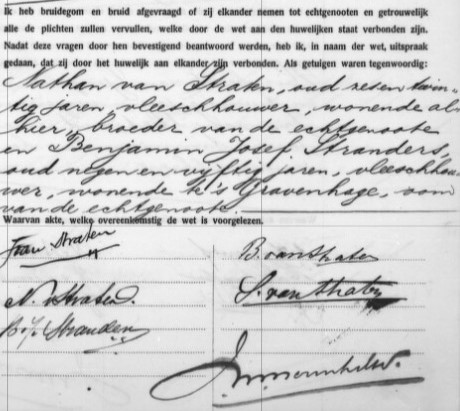 Ik heb bruidegom en bruid afgevraagd of zij elkander nemen tot echtgenooten en getrouwelijk
alle de plichten zullen vervullen, welke door de wet aan den huwelijken staat verbonden zijn.
Nadat deze vragen door hen bevestigend beantwoord werden, heb ik, in naam der wet, uitspraak
gedaan, dat zij door het huwelijk aan elkander zijn verbonden. Als getuigen waren tegenwoordig:
Nathan van Straten, oud zesen twin„
tig jaren, vleeschhouwer, wonende al„
hier, broeder van de echtgenoote
en Benjamin Josef Stranders,
oud negen en vijftig jaren, vleeschhou„
wer, wonende te 's Gravenhage, oom
van de echtgenoote.
Waarvan akte, welke overeenkomstig de wet is voorgelezen.
Straten
B van Straten
N. v Straten.
S. van Straten
B. J. Stranders